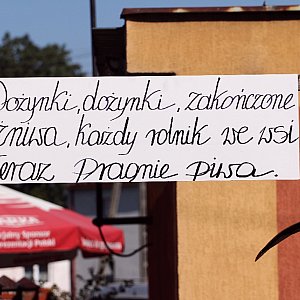 Dożynki, dożynki, zakończone
żniwa, każdy rolnik we wsi
teraz Pragnie piwa.
ARKA
cjalny Sponsor
prezentacji Polski